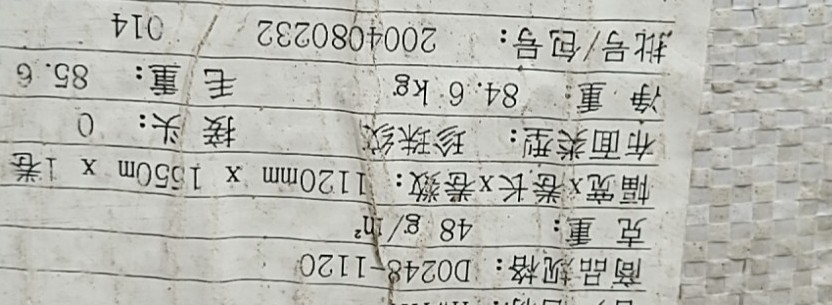 商品规格: D0248-1120
克 重: 48 g/m²
幅宽x卷长x卷数: 1120mm x 1550m x 1卷
布面类型: 珍珠纹 接 头: 0
净 重: 84.6 kg 毛 重: 85.6
批号/包号: 2004080232 / 014